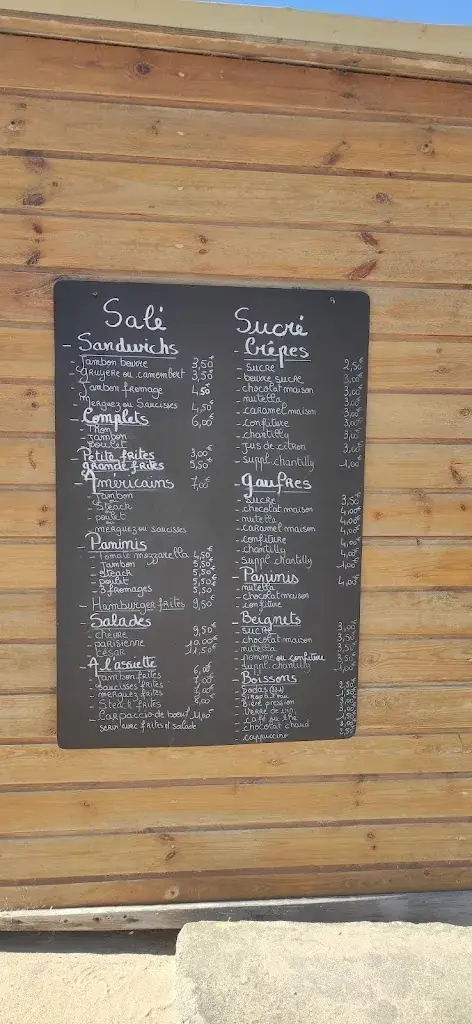 Salé
- Sandwichs
- Jambon beurre 3,50€
- gruyère ou camembert 3,50€
- Jambon fromage 4,50€
- Merguez ou Saucisses 4,50€
- Complets 6,00€
- Thon
- Jambon
- poulet
- Petite frites 3,00€
grande frites 5,50€
- Américains 7,00€
- Jambon
- Steack
- poulet
- merguez ou saucisses
- Paninis
- Tomate mozzarella 4,50€
- Jambon 5,50€
- Steack 5,50€
- poulet 5,50€
- 3 fromages 5,50€
- Hamburger frites 9,50€
- Salades
- chèvre 9,50€
- parisienne 10,00€
- césar 11,50€
- A l'assiette
- Jambon frites 6,00€
- Saucisses frites
- merguez frites
- Steack frites
- Carpaccio de boeuf
servi avec frites et salade
Sucré
- Crêpes
- sucre 2,50€
- beurre sucre 3,00€
- chocolat maison 3,00€
- nutella 3,00€
- caramel maison 3,00€
- confiture 3,00€
- chantilly 3,00€
- jus de citron 3,00€
- suppl chantilly 1,00€
- gaufres
- sucre 3,50€
- chocolat maison 4,00€
- nutella 4,00€
- caramel maison 4,00€
- confiture 4,00€
- chantilly 4,00€
- suppl chantilly 1,00€
- Paninis 4,00€
- nutella
- chocolat maison
- confiture
- Beignets
- sucre 3,00€
- chocolat maison 3,50€
- nutella 3,50€
- pomme ou confiture 3,50€
- suppl chantilly 1,00€
- Boissons
- Sodas
- Sirop à l'eau
- Bière pression
- Verre de vin
- Café ou thé
- chocolat chaud
- cappuccino